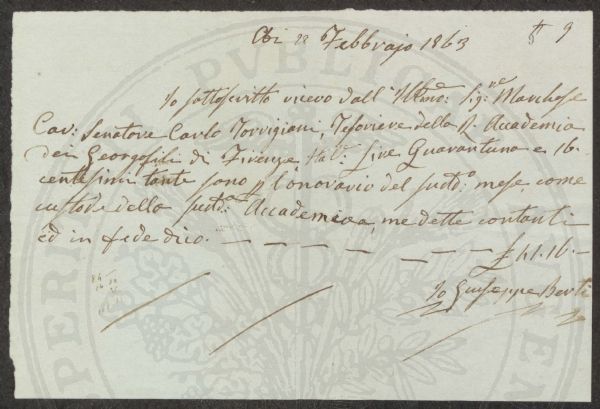 Adi 28 Febbrajo 1863 9
Io sottoscritto ricevo dall'Illmo: Sig:re Marchese
Cav: Senatore Carlo Torrigiani, Tesoriere della R. Accademia
dei Georgofili di Firenze Ital: Lire Quarantuna e 16.
centesimi tante sono p. l'onorario del sudd:o mese come
custode della sudd:a Accademia, me dette contanti
ed in fede dico. — — — — — — — £ 41.16.—
Io Giuseppe Berti